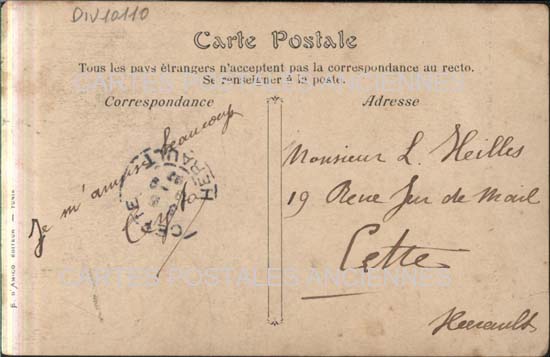 DIV10110
Carte Postale
Tous les pays étrangers n'acceptent pas la correspondance au recto.
Se renseigner à la poste.
Correspondance
Adresse
Je m'amuse beaucoup
Monsieur L. Heilles
19 Rue Sur de Mail
Cette
Herault
CETTE
HERAULT
CARTES POSTALES ANCIENNES
CARTES POSTALES ANCIENNES
B. D'AMICO EDITEUR — TUNIS